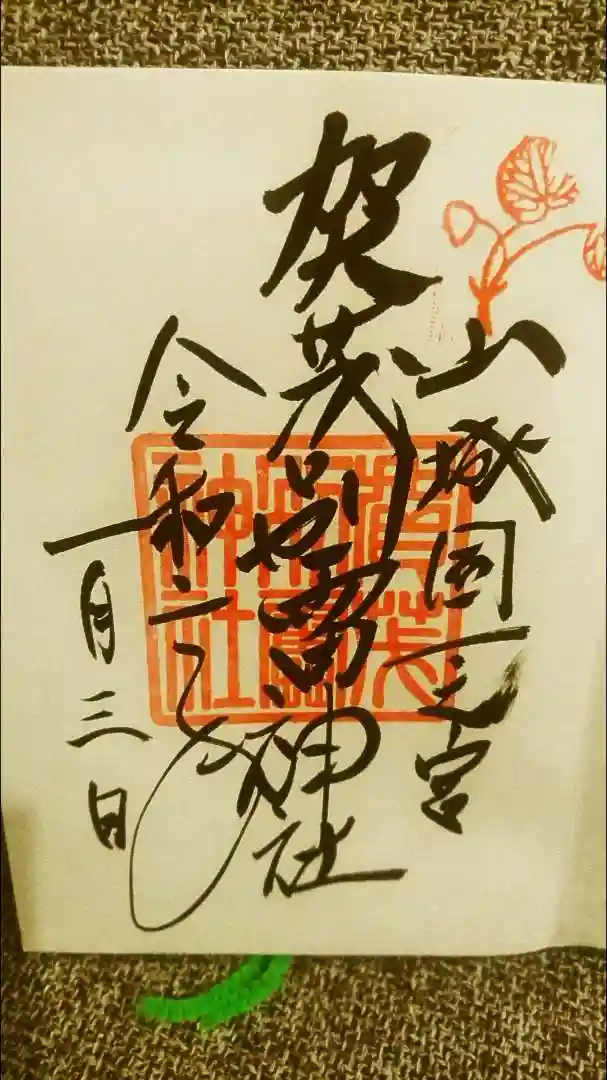 山城国一之宮
賀茂別雷神社
令和二年
一月三日
賀茂
別雷
神社